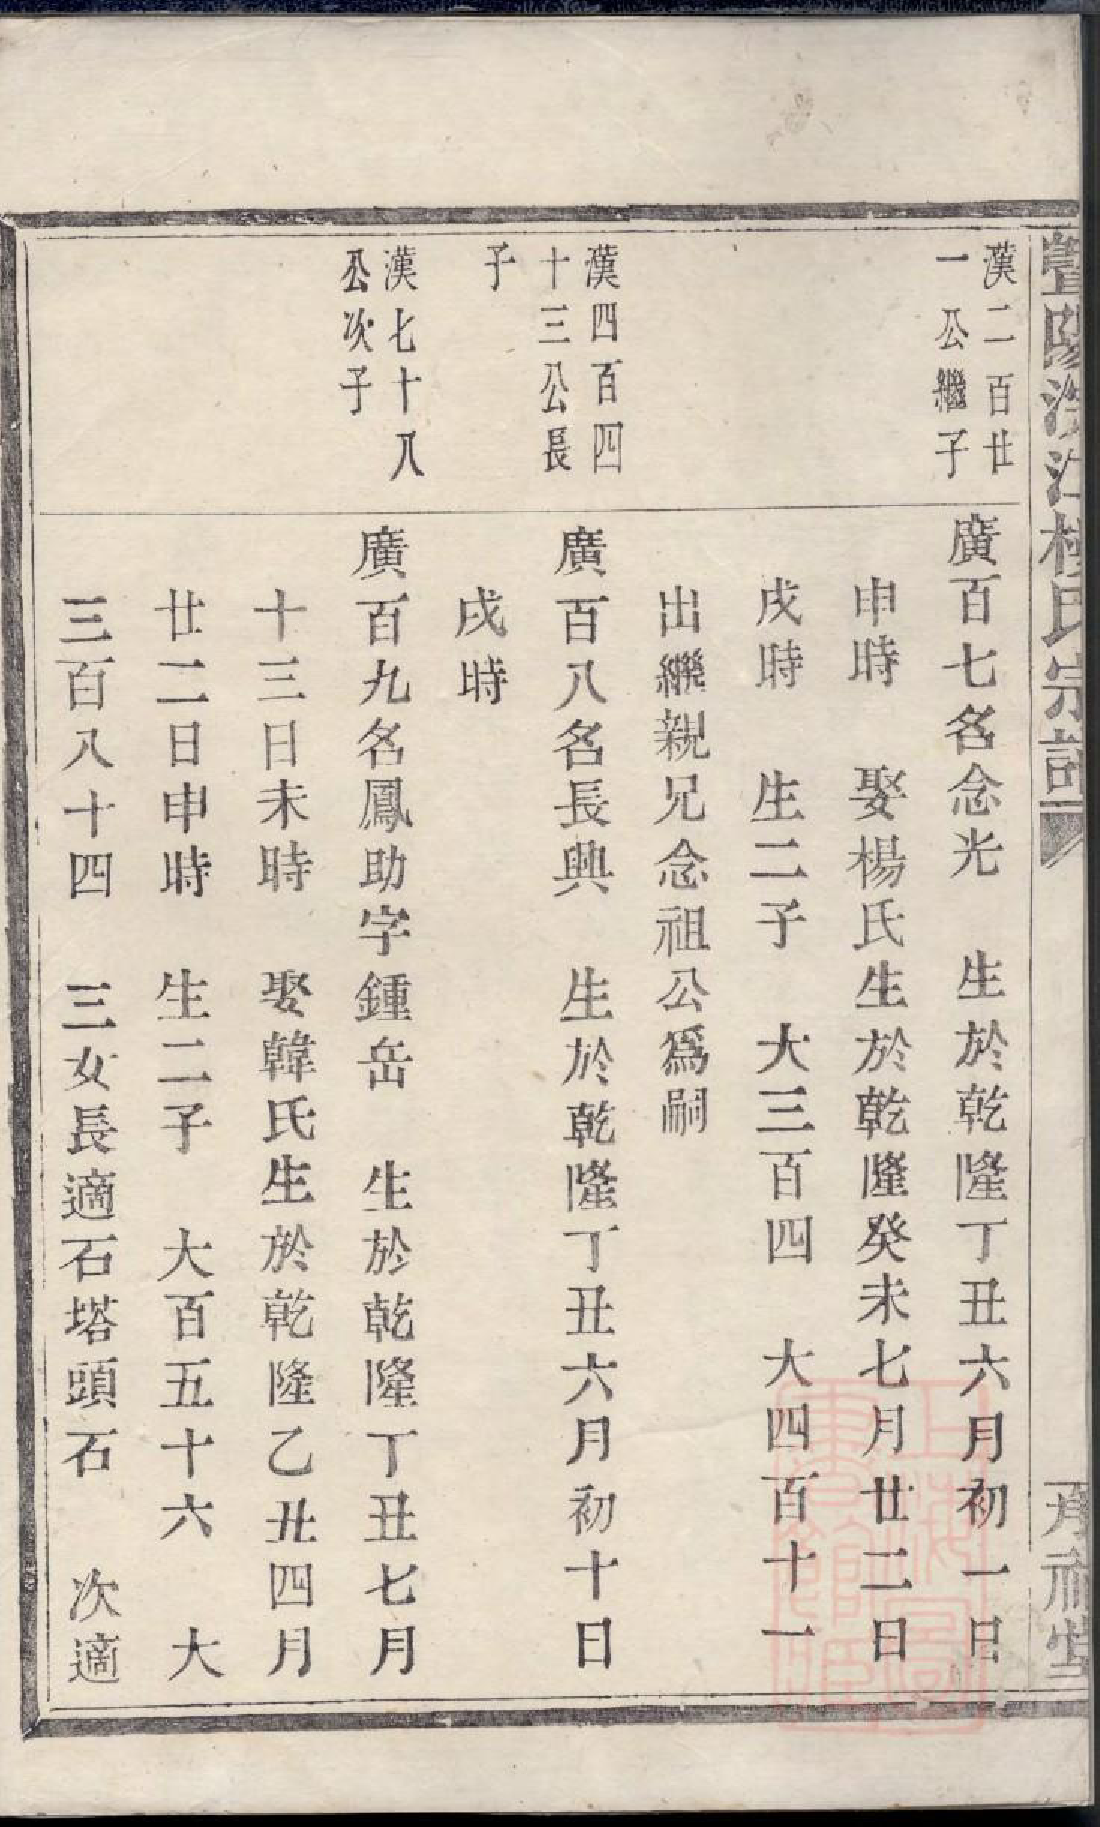 漢二百廿
一公繼子
廣百七名念光　生於乾隆丁丑六月初一日
申時　娶楊氏生於乾隆癸未七月廿二日
戌時　生二子　大三百四　大四百十一
出繼親兄念祖公爲嗣
漢四百四
十三公長
子
廣百八名長興　生於乾隆丁丑六月初十日
戌時
漢七十八
公次子
廣百九名鳳助字鍾岳　生於乾隆丁丑七月
十三日未時　娶韓氏生於乾隆乙丑四月
廿二日申時　生二子　大百五十六　大
三百八十四　三女長適石塔頭石　次適